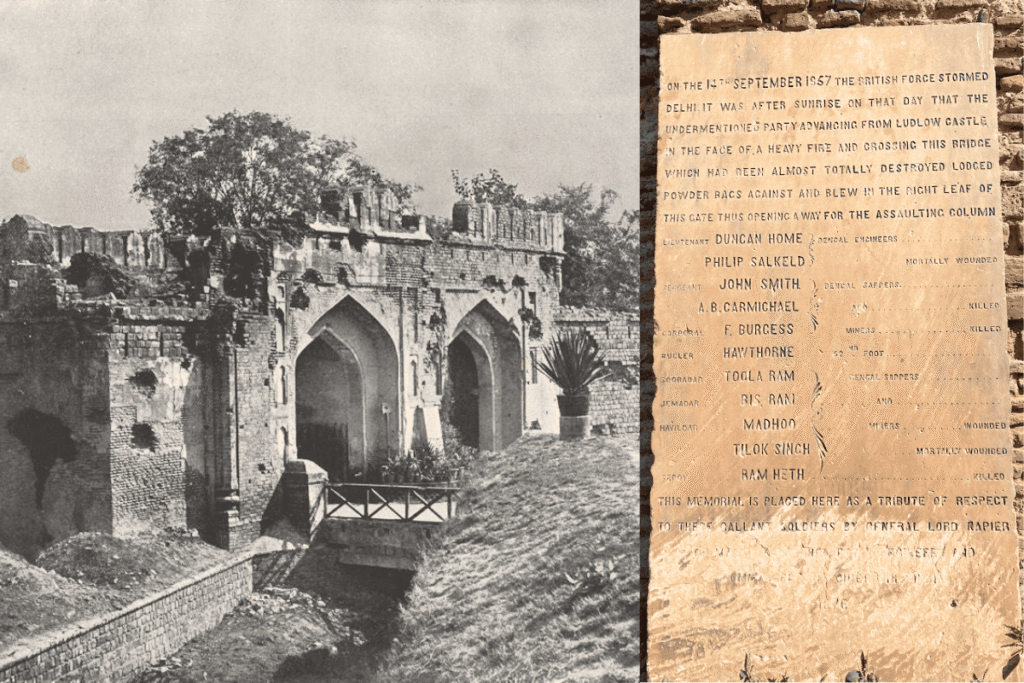 ON THE 14TH SEPTEMBER 1857 THE BRITISH FORCE STORMED
DELHI. IT WAS AFTER SUNRISE ON THAT DAY THAT THE
UNDERMENTIONED PARTY ADVANCING FROM LUDLOW CASTLE
IN THE FACE OF A HEAVY FIRE AND CROSSING THIS BRIDGE
WHICH HAD BEEN ALMOST TOTALLY DESTROYED LODGED
POWDER BAGS AGAINST AND BLEW IN THE RIGHT LEAF OF
THIS GATE THUS OPENING A WAY FOR THE ASSAULTING COLUMN
LIEUTENANT DUNCAN HOME BENGAL ENGINEERS
PHILIP SALKELD MORTALLY WOUNDED
SERGEANT JOHN SMITH BENGAL SAPPERS
A.B. CARMICHAEL AND KILLED
CORPORAL F. BURGESS MINERS KILLED
BUGLER HAWTHORNE 52ND FOOT
SOOBADAR TOOLA RAM BENGAL SAPPERS
JEMADAR BIS RAM AND
HAVILDAR MADHOO MINERS WOUNDED
TILOK SINGH MORTALLY WOUNDED
SEPOY RAM HETH KILLED
THIS MEMORIAL IS PLACED HERE AS A TRIBUTE OF RESPECT
TO THESE GALLANT SOLDIERS BY GENERAL LORD NAPIER